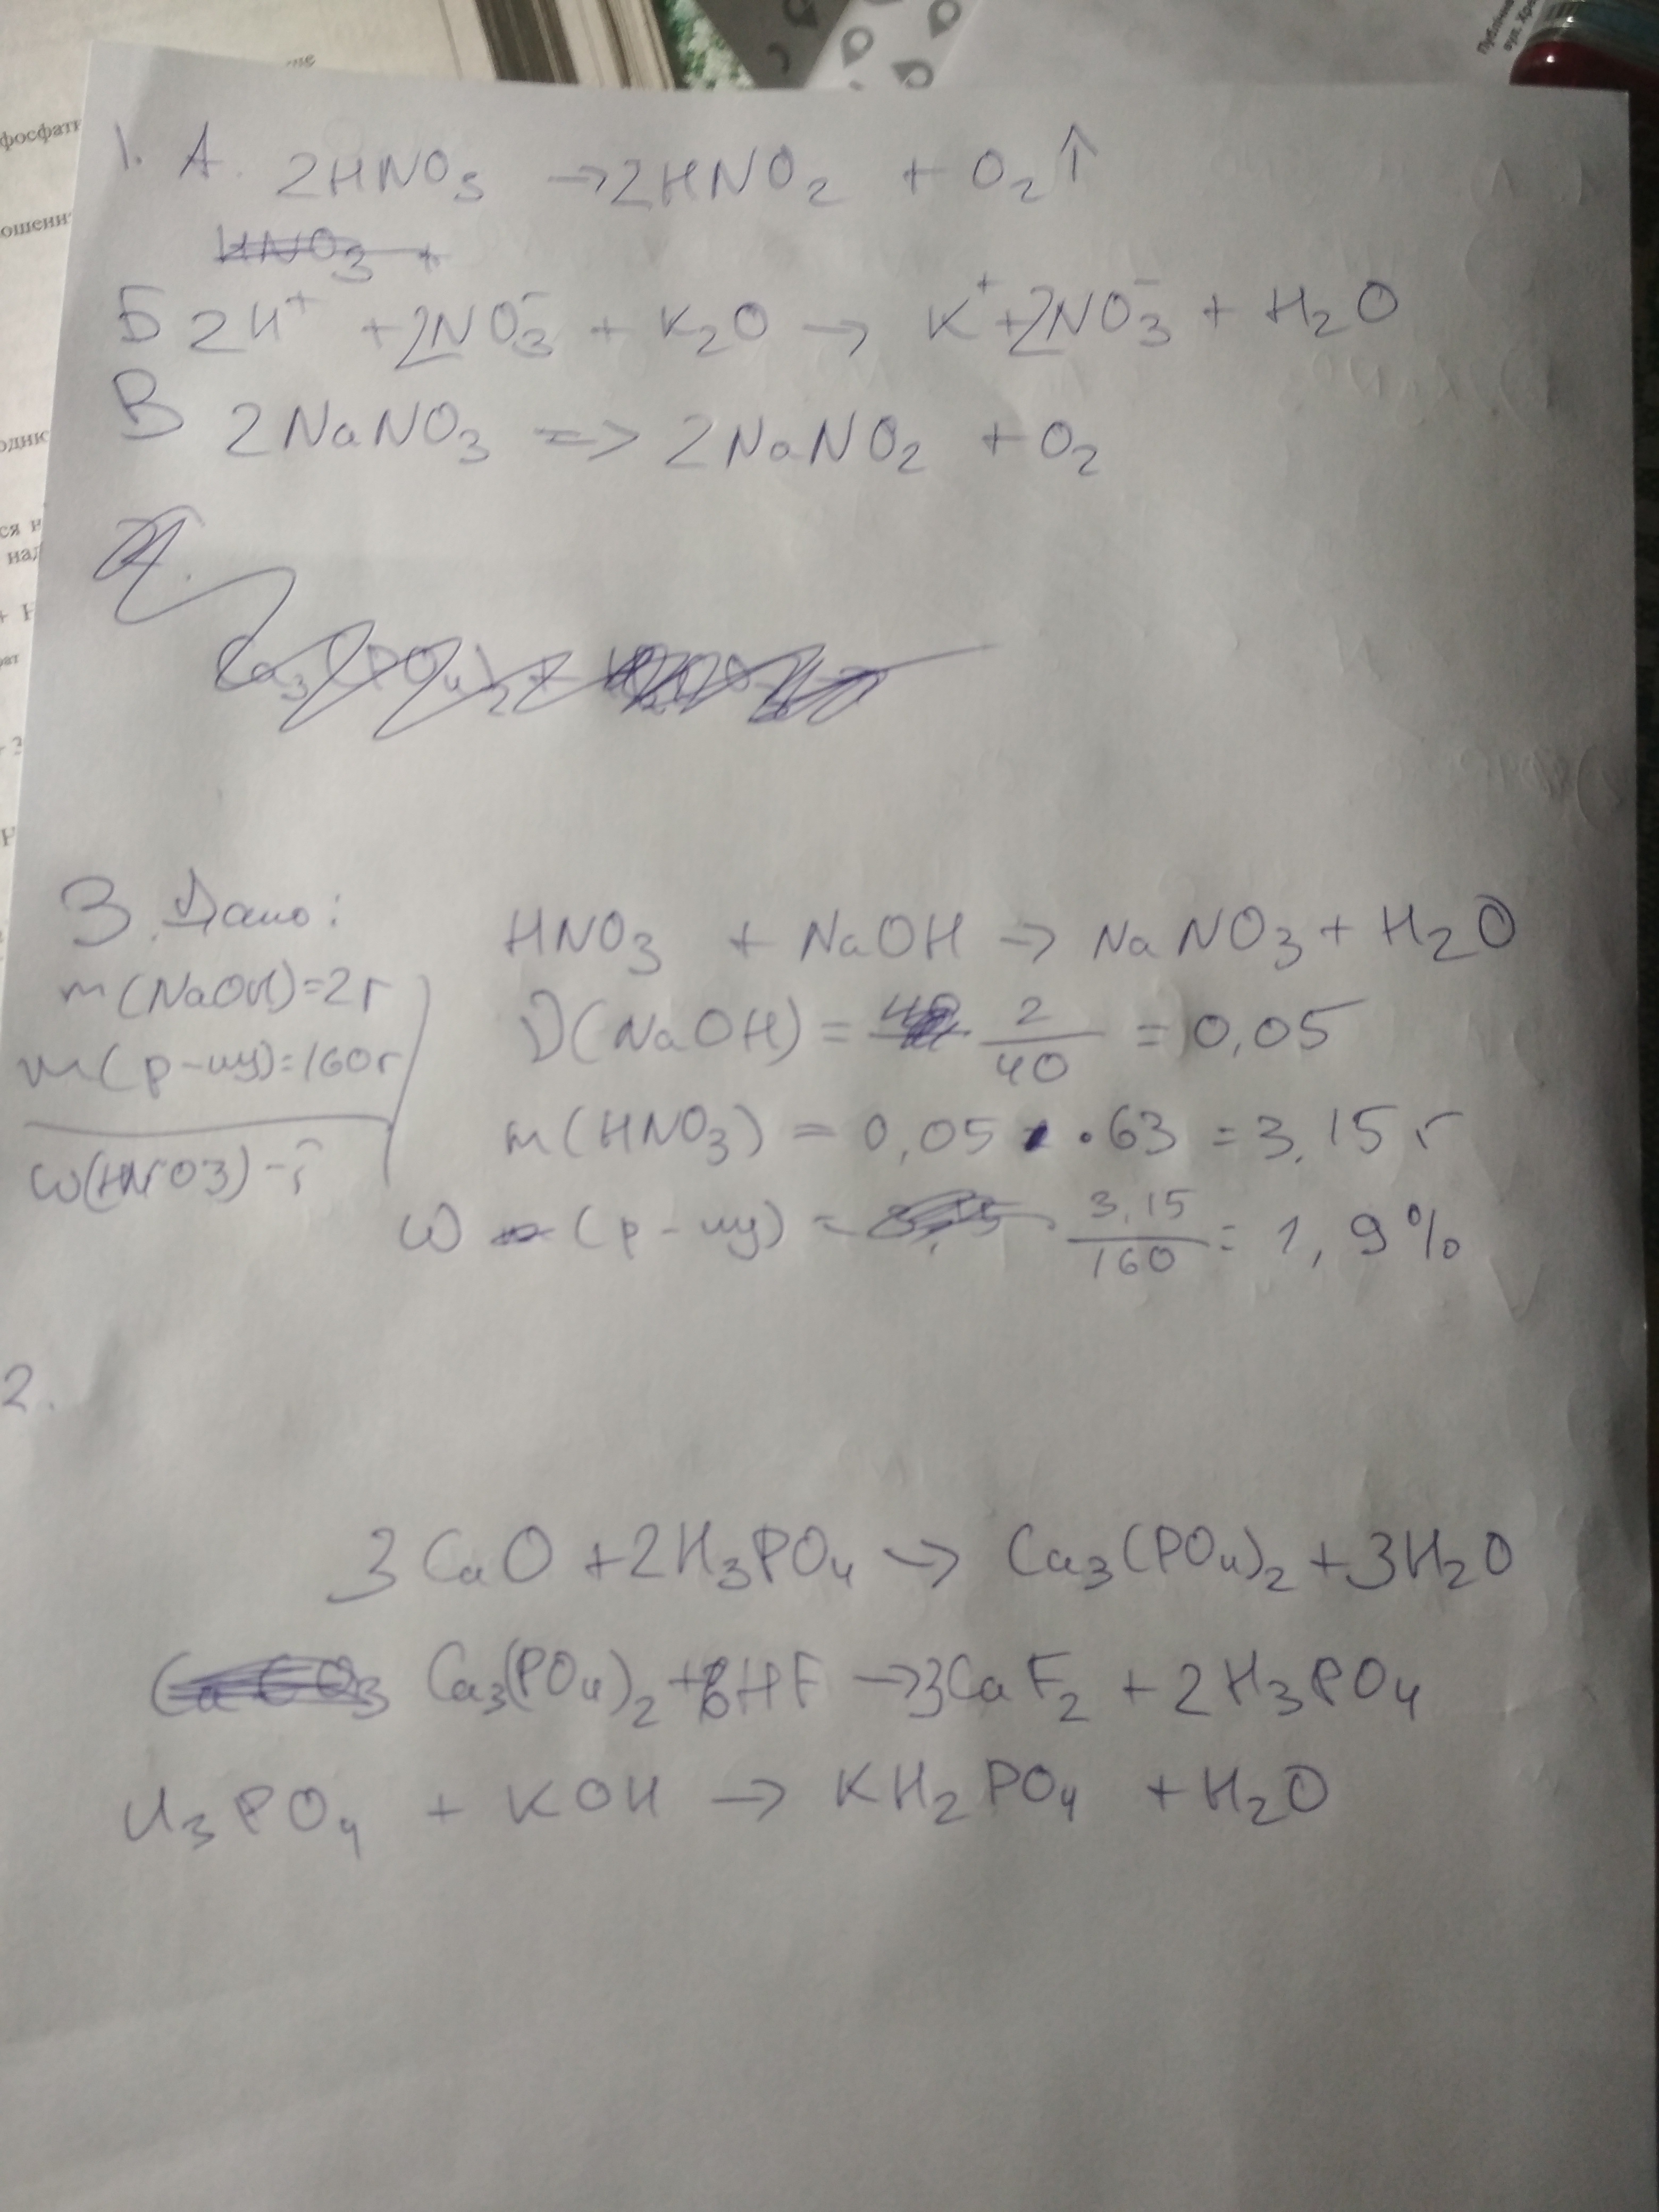 фосфат
1. А. 2HNO₃ → 2HNO₂ + O₂↑
HNO₃ +
Б 2H⁺ + 2NO₃⁻ + K₂O → K⁺ + 2NO₃⁻ + H₂O
В 2NaNO₃ => 2NaNO₂ + O₂
Ca₃(PO₄)₂ +
3. Дано:
m(NaOH)=2г
m(р-ну)=160г
ω(HNO3)-?
HNO₃ + NaOH → NaNO₃ + H₂O
ν(NaOH) = 2/40 = 0,05
m(HNO₃) = 0,05 · 63 = 3,15 г
ω (р-ну) = 3,15/160 = 1,9%
2.
3CaO + 2H₃PO₄ → Ca₃(PO₄)₂ + 3H₂O
CaCO₃ Ca₃(PO₄)₂ + 6HF → 3CaF₂ + 2H₃PO₄
H₃PO₄ + KOH → KH₂PO₄ + H₂O